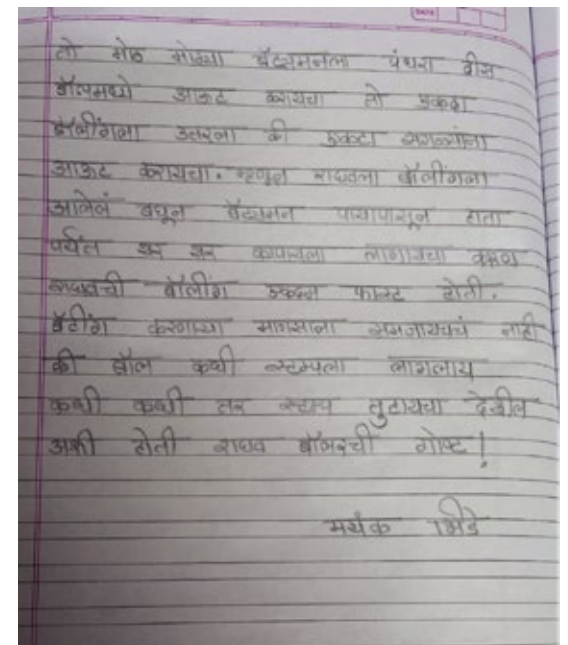 तो मोठ मोठ्या बॅट्समनला पंधरा वीस
बॉलमध्ये आऊट करायचा तो एकदा
बॉलींगला उतरला की एकटा सगळ्यांना
आऊट करायचा. म्हणून राघवला बॉलींगला
आलेलं बघून बॅट्समन पायापासून हाता
पर्यंत थर थर कापायला लागायचा कारण
राघवची बॉलींग एकदम फास्ट होती.
बॅटींग करणाऱ्या माणसाला समजायचचं नाही
की बॉल कधी स्टम्पला लागलाय
कधी कधी तर स्टम्प तुटायचा देखील
अशी होती राघव बॉलरची गोष्ट!
मयंक भिडे